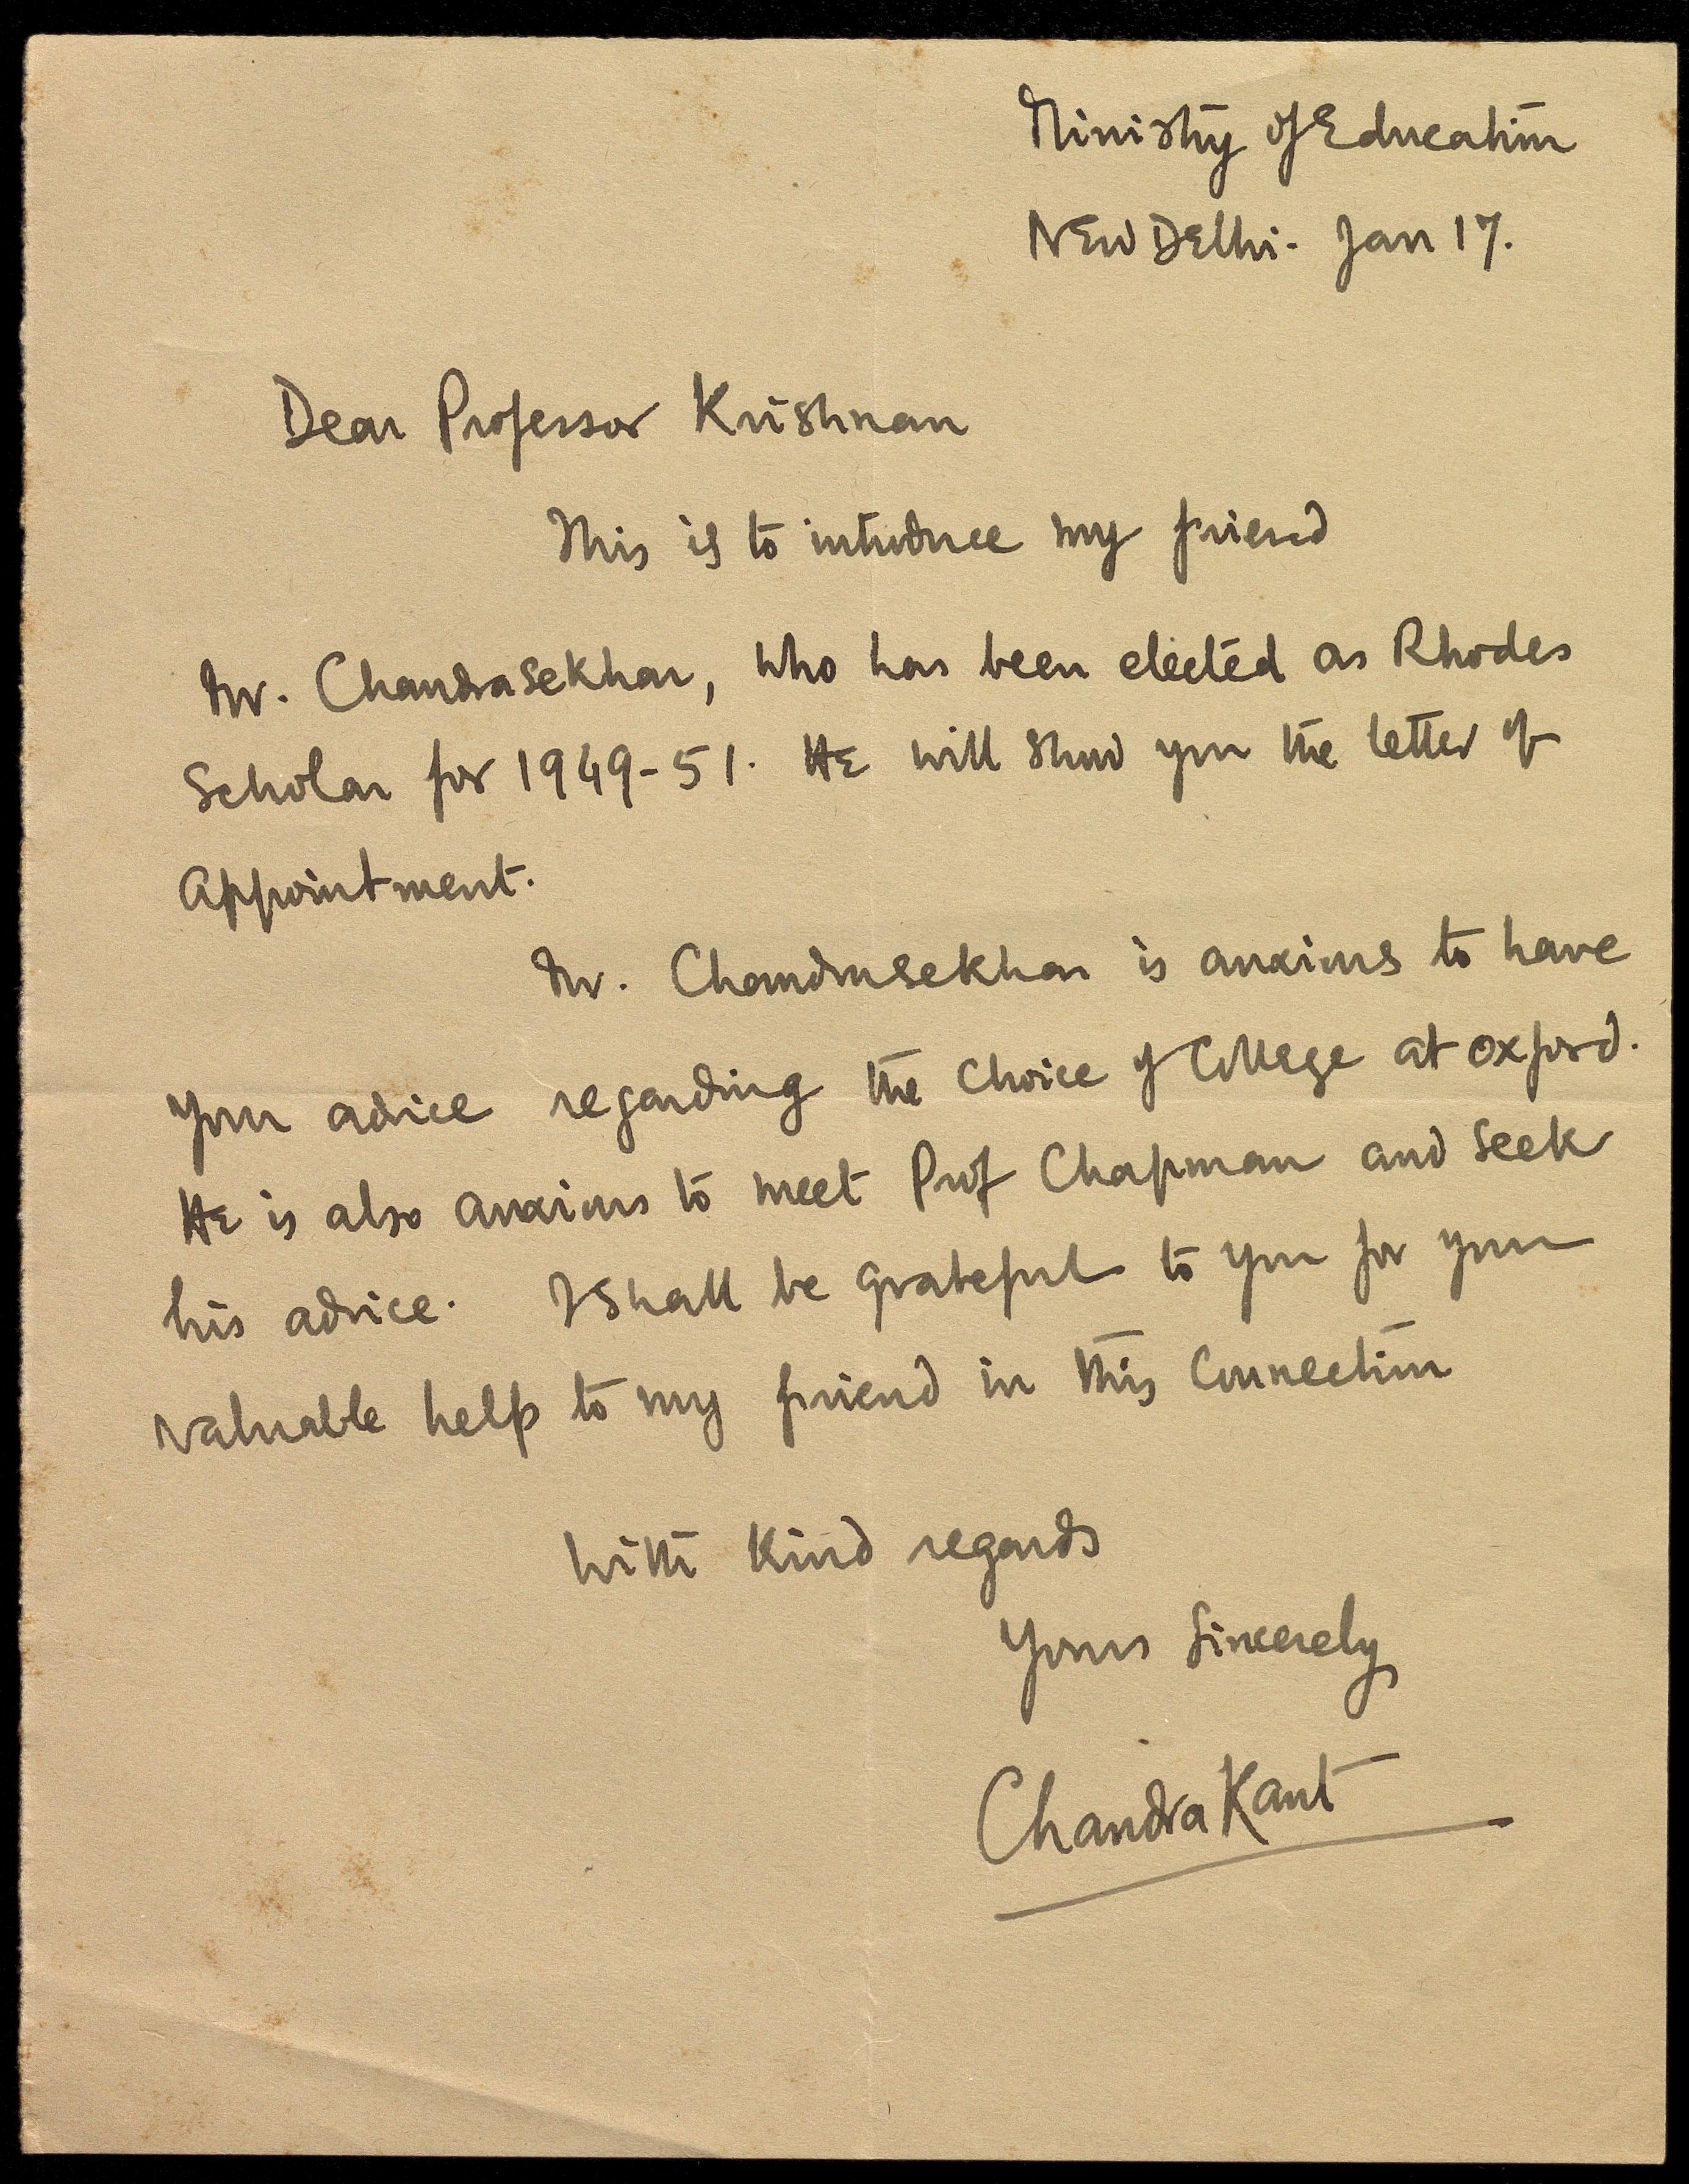 Ministry of Education
New Delhi - Jan 17.
Dear Professor Krishnan
This is to introduce my friend
Mr. Chandrasekhar, who has been elected as Rhodes
Scholar for 1949-51. He will show you the letter of
appointment.
Mr. Chandrasekhar is anxious to have
your advice regarding the choice of College at Oxford.
He is also anxious to meet Prof Chapman and seek
his advice. I shall be grateful to you for your
valuable help to my friend in this connection
With kind regards
Yours Sincerely
ChandraKant